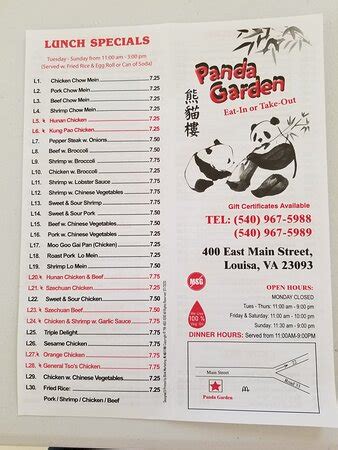 LUNCH SPECIALS
Tuesday - Sunday from 11:00 am - 3:00 pm
(Served w. Fried Rice & Egg Roll or Can of Soda)
L1. Chicken Chow Mein 7.25
L2. Pork Chow Mein 7.25
L3. Beef Chow Mein 7.25
L4. Shrimp Chow Mein 7.25
L5. Hunan Chicken 7.25
L6. Kung Pao Chicken 7.25
L7. Pepper Steak w. Onions 7.50
L8. Beef w. Broccoli 7.50
L9. Shrimp w. Broccoli 7.50
L10. Chicken w. Broccoli 7.50
L11. Shrimp w. Lobster Sauce 7.25
L12. Shrimp w. Chinese Vegetables 7.25
L13. Sweet & Sour Shrimp 7.25
L14. Sweet & Sour Pork 7.25
L15. Beef w. Chinese Vegetables 7.25
L16. Pork w. Chinese Vegetables 7.25
L17. Moo Goo Gai Pan (Chicken) 7.25
L18. Roast Pork Lo Mein 7.25
L19. Shrimp Lo Mein 7.25
L20. Hunan Chicken & Beef 7.75
L21. Szechuan Chicken 7.25
L22. Sweet & Sour Chicken 7.25
L23. Szechuan Beef 7.50
L24. Chicken & Shrimp w. Garlic Sauce 7.75
L25. Triple Delight 7.75
L26. Sesame Chicken 7.75
L27. Orange Chicken 7.75
L28. General Tso's Chicken 7.75
L29. Chicken w. Chinese Vegetables 7.25
L30. Fried Rice: 7.25
Pork / Shrimp / Chicken / Beef
Panda
Garden
熊貓樓
Eat-In or Take-Out
Gift Certificates Available
TEL: (540) 967-5988
(540) 967-5989
400 East Main Street,
Louisa, VA 23093
MSG
100 %
OPEN HOURS:
MONDAY CLOSED
Tues - Thurs: 11:00 am - 9:00 pm
Friday & Saturday: 11:00 am - 10:00 pm
Sunday: 11:30 am - 9:00 pm
DINNER HOURS: Served from 11:00AM-9:00PM
Main Street
Panda Garden